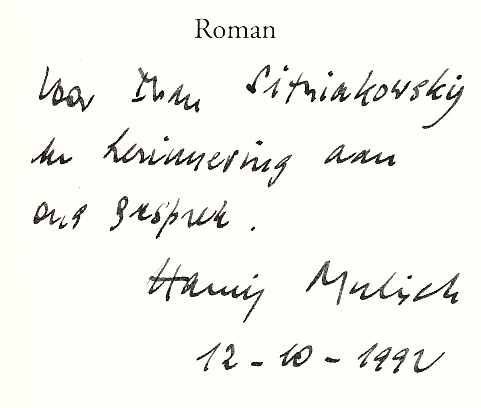 Roman
Voor Ivan Sitniakowsky
in herinnering aan
ons gesprek.
Harry Mulisch
12-10-1992